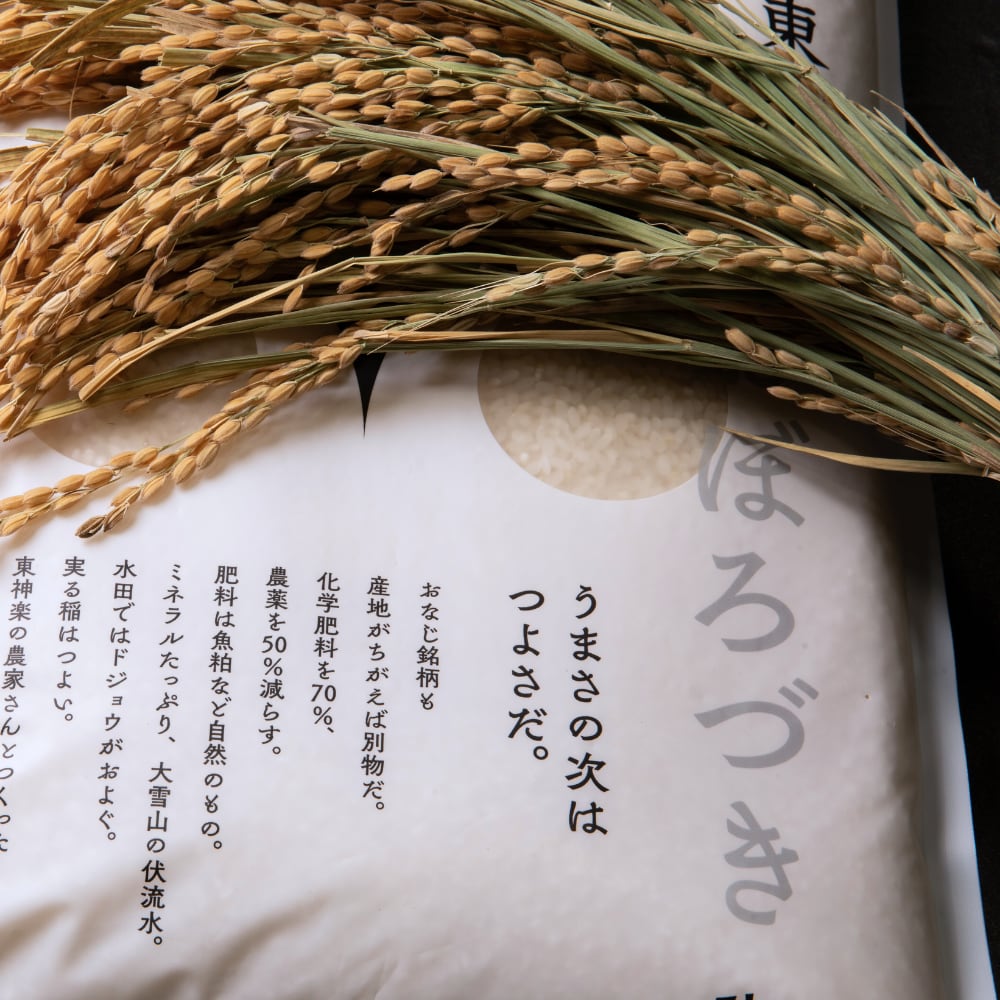 東
ぼろづき
うまさの次は
つよさだ。
おなじ銘柄も
産地がちがえば別物だ。
化学肥料を70%、
農薬を50%減らす。
肥料は魚粕など自然のもの。
ミネラルたっぷり、大雪山の伏流水。
水田ではドジョウがおよぐ。
実る稲はつよい。
東神楽の農家さんとつくった